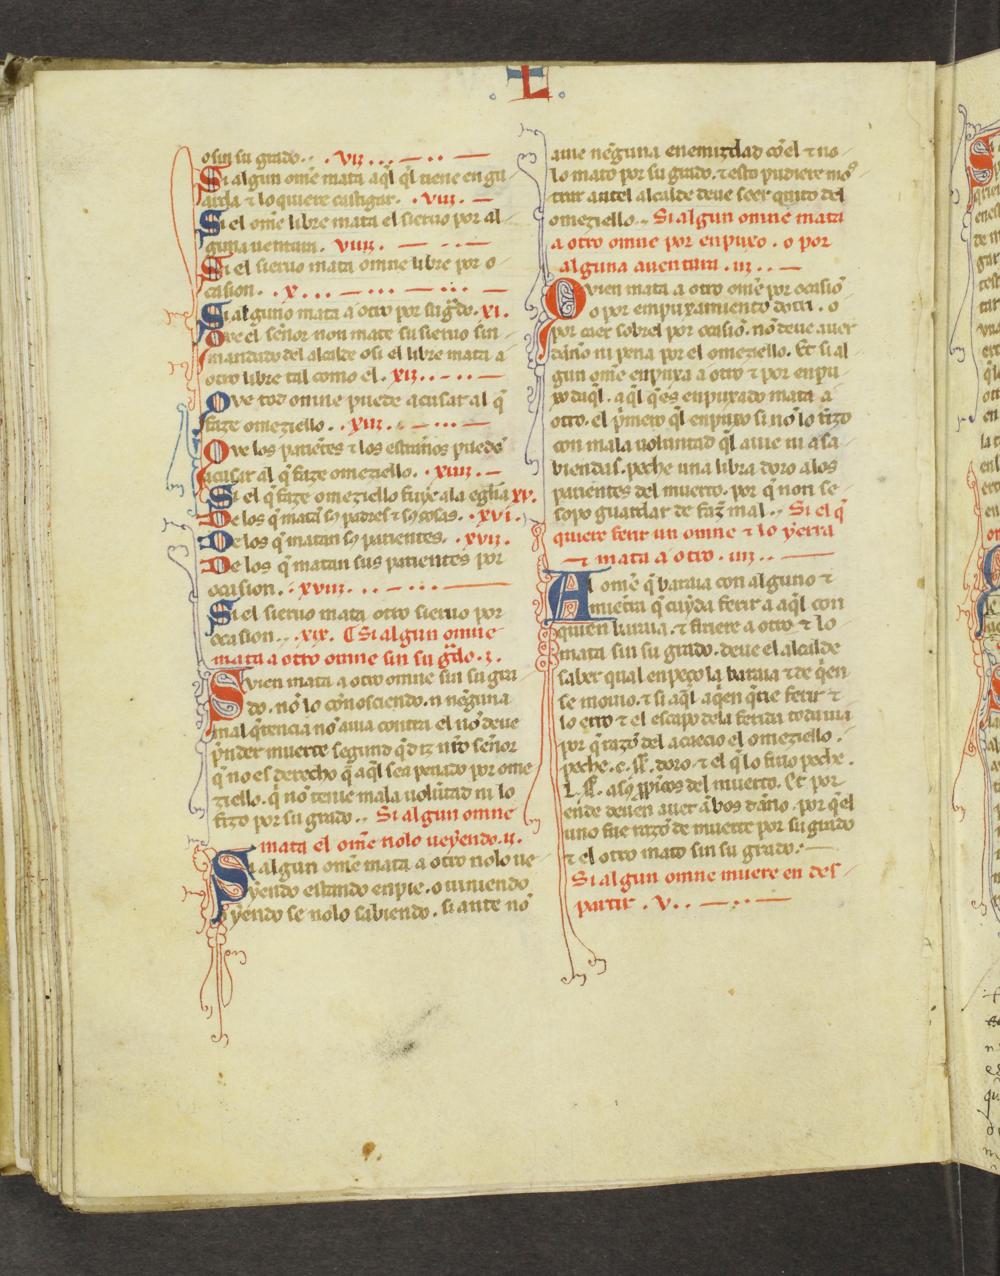 L
o sin su grado. . . vii. . . — . . —
Si algun om̄e mata aq̄l q̄l tiene en gu
arda ⁊ lo quiere castigar. . viii. —
Si el om̄e libre mata el sieruo por al
guna uentura. viiii. — . . —
Si el sieruo mata omne libre por o
casion. . x. . . — . . . — . . . —
Si alguno mata a otro por su g̃do. xi.
Que el señor non mate su sieruo sin
mandado del alcalde o si el libre mata a
otro libre tal como el. xii. . . — . . . —
Que tod omne puede acusar al q̄
faze omeziello. . xiii. . — . . . —
Que los parientes ⁊ los estraños puedē
acusar al q̄ faze omeziello. . xiiii. —
Si el q̄ faze omeziello fuye a la eglīa xv.
De los q̄ matā sꝯ padres ⁊ sꝯ cosas. . xvi.
De los q̄ matan sꝯ parientes. . xvii.
De los q̄ matan sus parientes por
ocasion. . xviii. — . . . —
Si el sieruo mata otro sieruo por
ocasion. . . xix. ¶ Si algun omne
mata a otro omne sin su g̃do. i.
Quien mata a otro omne sin su gra
do. nō lo cōnosciendo. n neguna
mal q̄rencia nō auia contra el nō deue
p̄nder muerte segund q̄ diz nr̄o señor
q̄ no es derecho q̄ aq̄l sea penado por ome
ziello. q̄ nō tenie mala volūtad ni lo
fizo por su grado. . Si algun omne
mata el om̄e nolo ueyendo. ii.
Si algun om̄e mata a otro nolo ue
yendo estando en pie. o uiniendo
o yendo se nolo sabiendo. si ante nō
auie neguna enemiztad cō el ⁊ no
lo mato por su grado. ⁊ esto pudiere mos
trar antel alcalde deue seer quito del
omeziello. . Si algun omne mata
a otro omne por enpuxo. o por
alguna auentura. iii. . . —
Quien mata a otro om̄e por ocasiō
o por empuxamiento dotri. o
por caer sobrel por ocasiō. nō deue auer
dāno ni pena por el omeziello. Et si al
gun om̄e enpuxa a otro ⁊ por enpu
xo daq̄l. aq̄l q̄ es enpuxado mata a
otro. el p̄mero q̄l enpuxo si nō lo fizo
con mala uoluntad q̄l auie ni a sa
biendas. peche una libra doro a los
parientes del muerto. por q̄ non se
sopo guardar de faz̄ mal. . Si el q̄
quiere ferir un omne ⁊ lo yerra
— ⁊ mata a otro. iiii. . —
Al om̄e q̄ baraia con alguno ⁊
muestra q̄ cuyda ferir a aq̄l con
quien baraia. ⁊ firiere a otro ⁊ lo
mata sin su grado. deue el alcalde
saber qual enpeço la baraia ⁊ de q̄en
se mouio. ⁊ si aq̄l aq̄en q̄rie ferir ⁊
lo erro ⁊ el escapo dela ferida toda uia
por q̄ razō del acaecio el omeziello.
peche. c. ss. doro. ⁊ el q̄ lo firio peche.
L. ss. a sꝯ p̄picos del muerto. Et por
ende deuen auer ābos dāno. por q̄ el
uno fue razō de muerte por su grado
⁊ el otro mato sin su grado. —
Si algun omne muere en des
partir. v. . — . . — —